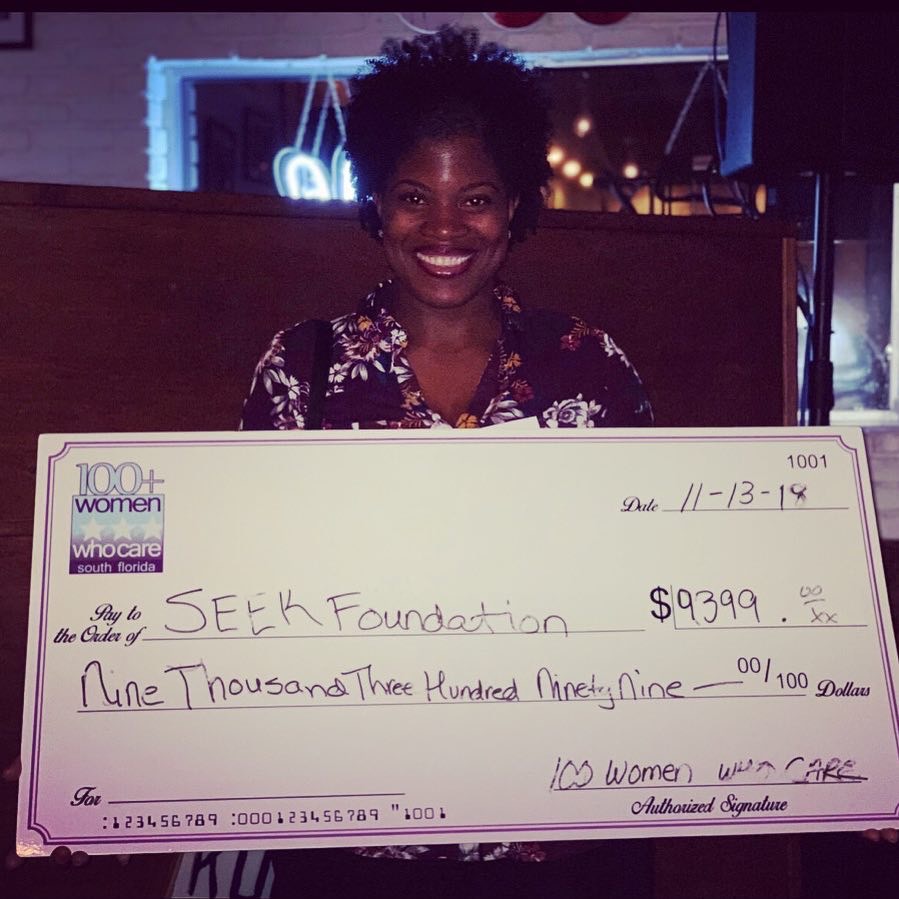 100+
women
who care
south florida
1001
Date 11-13-18
Pay to
the Order of SEEK Foundation $9399. 00/xx
Nine Thousand Three Hundred Ninety Nine — 00/100 Dollars
100 Women Who CARE
For
Authorized Signature
:123456789 :000123456789 "1001